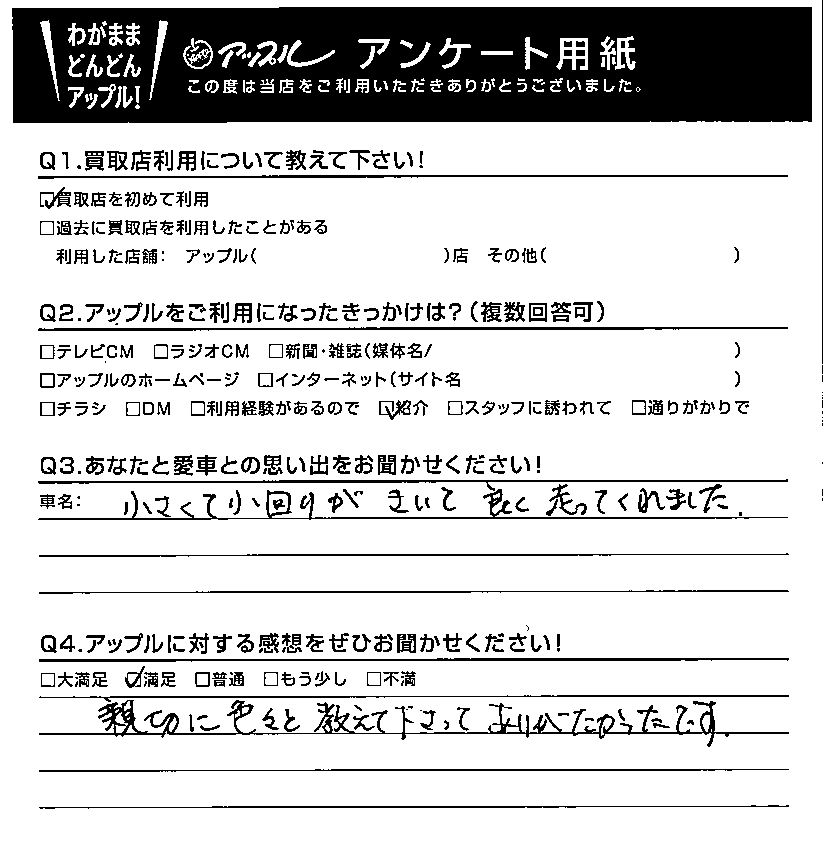 わがまま
どんどん
アップル!
アップル アンケート用紙
この度は当店をご利用いただきありがとうございました。
Q1.買取店利用について教えて下さい!
☑買取店を初めて利用
□過去に買取店を利用したことがある
利用した店舗: アップル( )店 その他( )
Q2.アップルをご利用になったきっかけは?(複数回答可)
□テレビCM □ラジオCM □新聞・雑誌(媒体名/ )
□アップルのホームページ □インターネット(サイト名 )
□チラシ □DM □利用経験があるので ☑紹介 □スタッフに誘われて □通りがかりで
Q3.あなたと愛車との思い出をお聞かせください!
車名: 小さくて小回りがきいて良く走ってくれました.
Q4.アップルに対する感想をぜひお聞かせください!
□大満足 ☑満足 □普通 □もう少し □不満
親切に色々と教えて下さってありがたかったです.